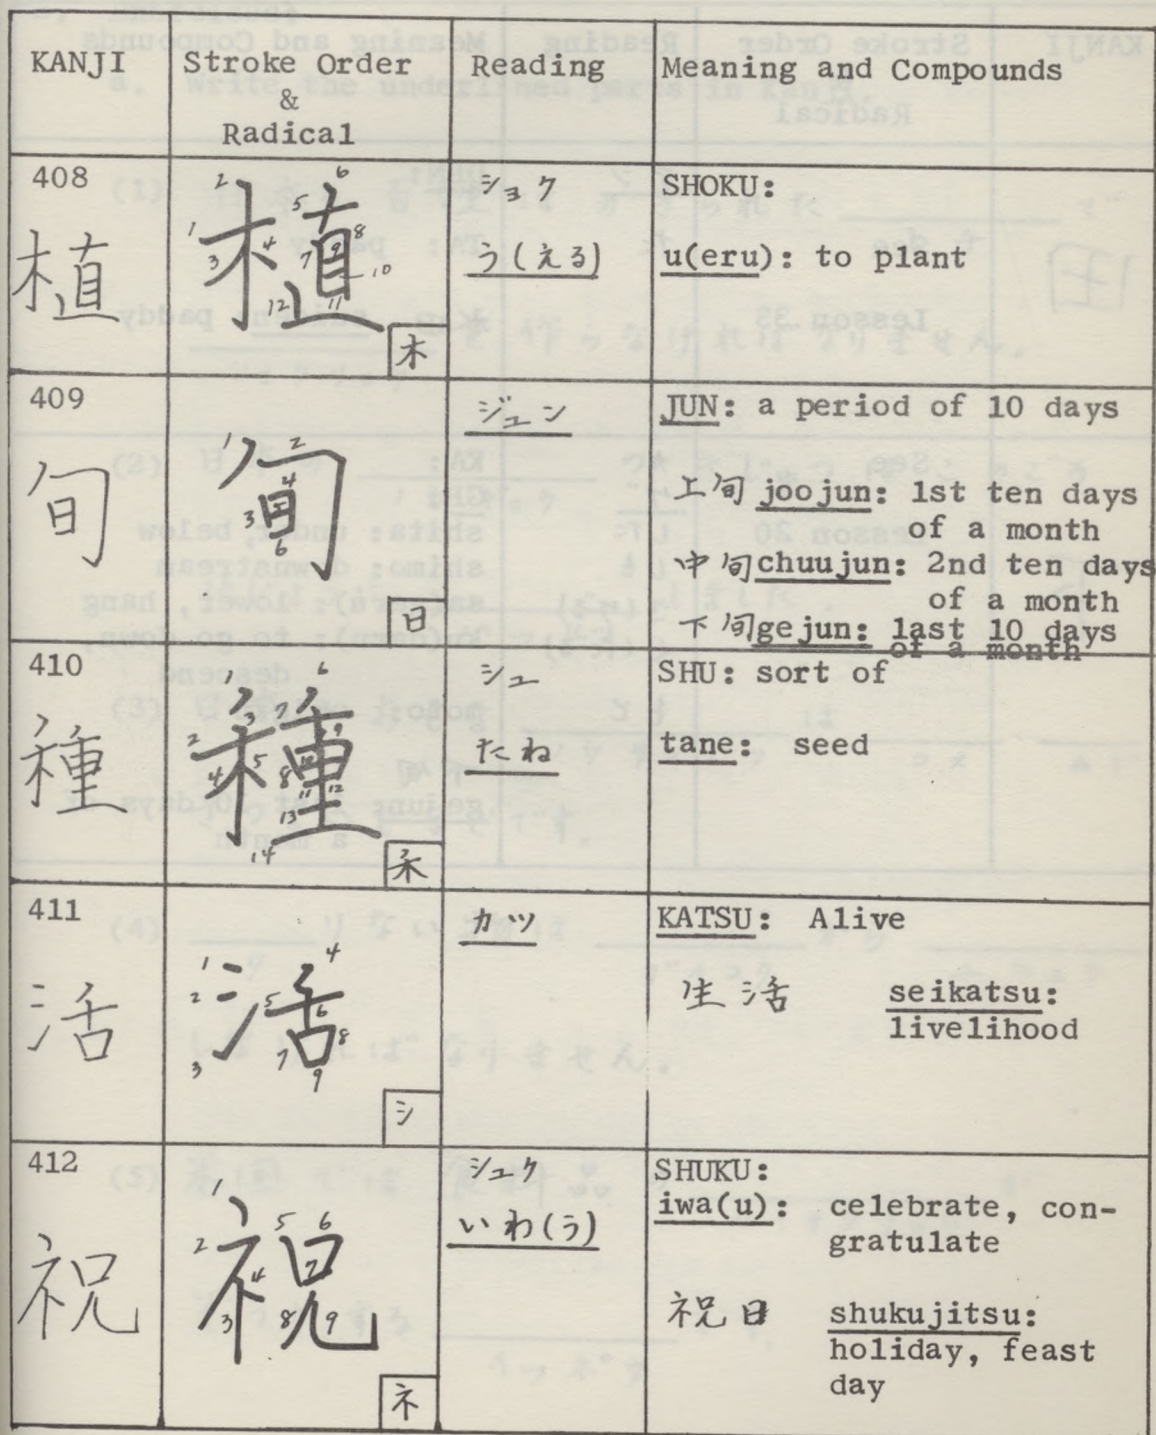 KANJI Stroke Order Reading Meaning and Compounds
&
Radical
408
植
植
1 2 3 4 5 6 7 8 9 10 11 12
木
ショク
う(える)
SHOKU:
u(eru): to plant
409
旬
旬
1 2 3 4 6
日
ジュン
JUN: a period of 10 days
上旬 joojun: 1st ten days
of a month
中旬 chuujun: 2nd ten days
of a month
下旬 gejun: last 10 days
of a month
410
種
種
1 2 3 4 5 6 7 8 9 10 11 12 13 14
禾
シュ
たね
SHU: sort of
tane: seed
411
活
活
1 2 3 4 5 6 7 8 9
シ
カツ
KATSU: Alive
生活 seikatsu:
livelihood
412
祝
祝
1 2 3 4 5 6 7 8 9
ネ
シュク
いわ(う)
SHUKU:
iwa(u): celebrate, con-
gratulate
祝日 shukujitsu:
holiday, feast
day